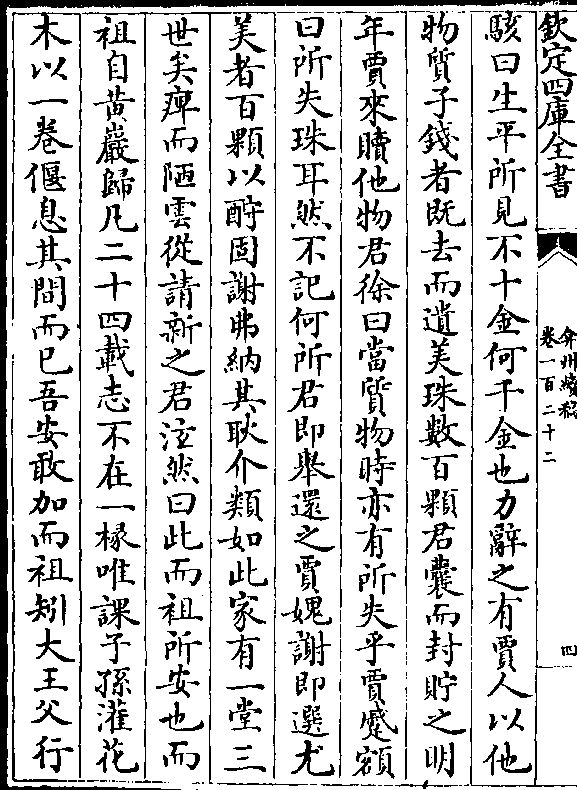 欽定四庫全書
弇州續稿
卷一百二十二
四
駭曰生平所見不十金何千金也力辭之有賈人以他
物質子錢者既去而遺美珠數百顆君囊而封貯之明
年賈來贖他物君徐曰當質物時亦有所失乎賈蹙額
曰所失珠耳然不記何所君即舉還之賈媿謝即選尤
美者百顆以酧固謝弗納其耿介類如此家有一堂三
世矣痺而陋雲從請新之君泫然曰此而祖所安也而
祖自黄巖歸凡二十四載志不在一椽唯課子孫灌花
木以一卷偃息其間而已吾安敢加而祖矧大王父行